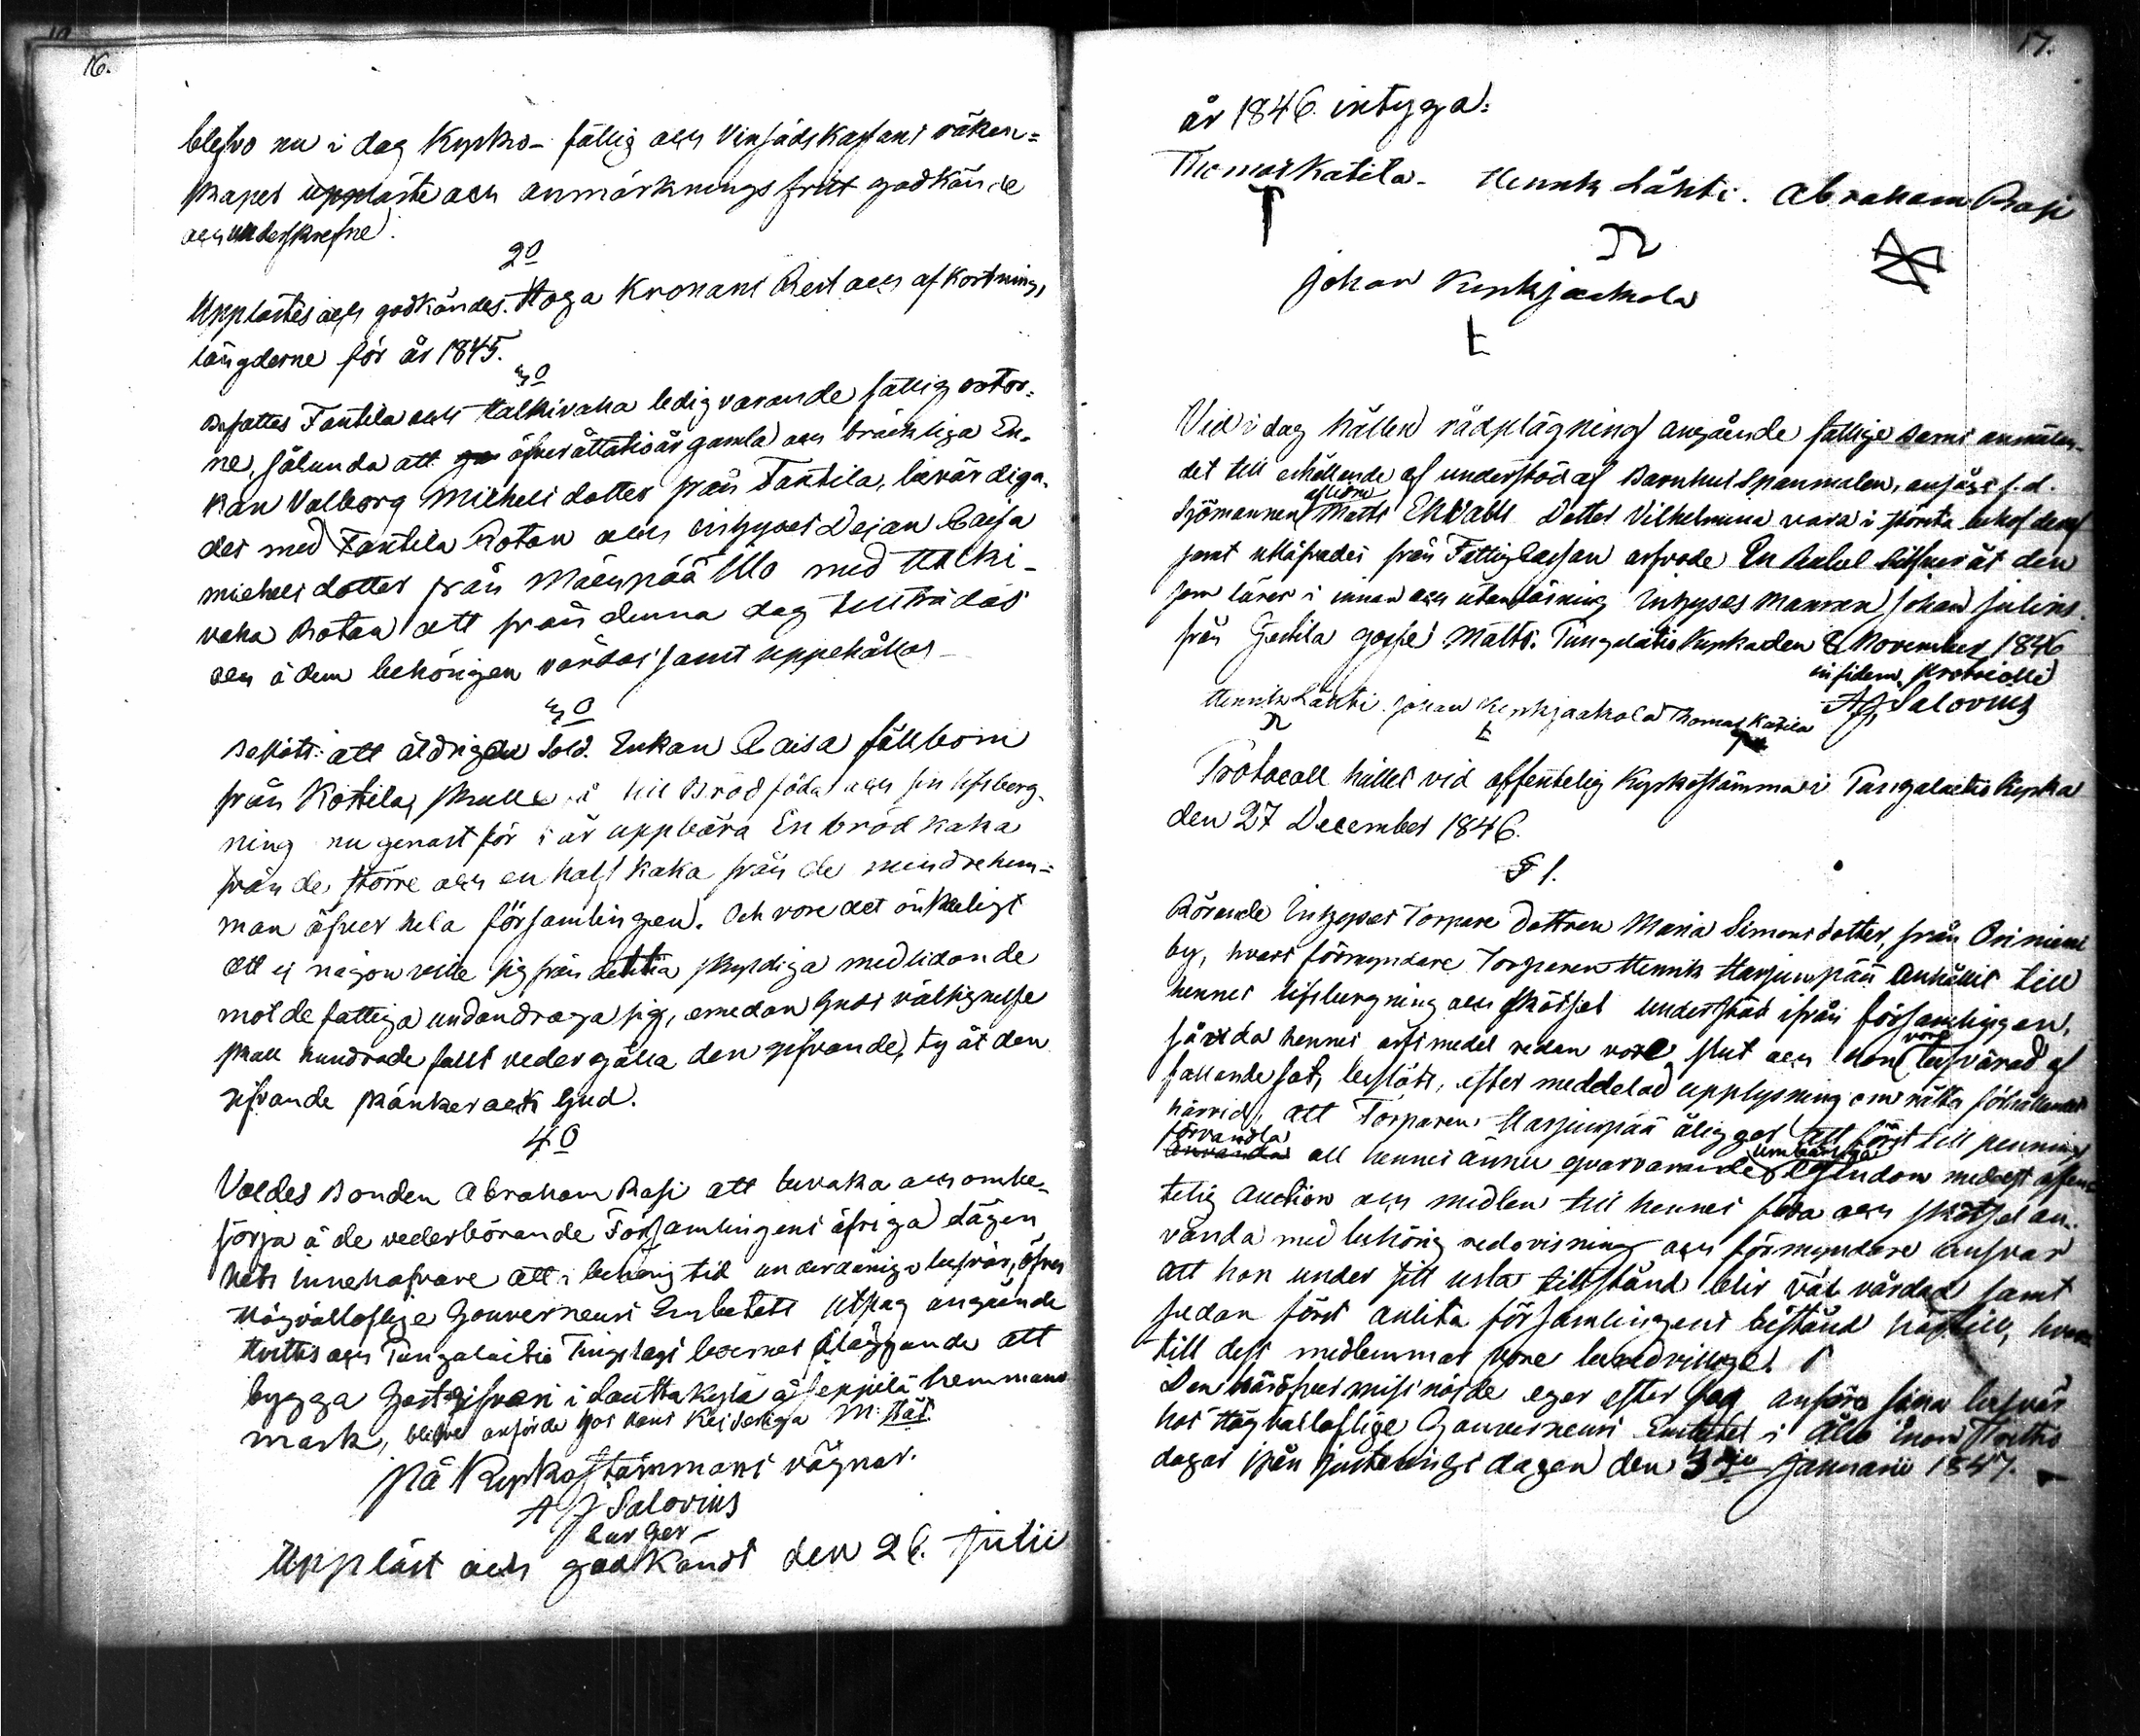 16.
blefvo nu i dag Kyrko- fattig och Vinsäds Kassans räken=
skaper uppläste och anmärkningsfritt godkände
och underskrefne.
2o
Upplästes och godkändes. Höga Kronans Rest och afkortnings
längderne för år 1845.
3o
Besattes Fantila och Halkivaha ledigvarande fattig rotor=
ne, sålunda att öfver åttatio år gamla och bräckliga En-
kan Valborg Michelsdotter från Fantila, lärar diga-
des med Fantila Rotan och inhyses Caisa
Michelsdotter från Mäenpää med Halki-
vaha Rotan att från denna dag tillträdas
och å dem behörigen vårdas samt uppehållas
3o
Beslöts: att åldrigen Sold. Enkan Caisa Fällbom
från Kottila, skulle till Bröd föda och sin lifsberg-
ning nu genast för i år uppbära En brödkaka
från de större och en half kaka från de mindre hem=
man öfver hela församlingen. Och vore det önskeligt
att ej någon ville sig från detta skyldiga medlidande
mot de fattiga undandraga sig, emedan Guds välsignelse
skall hundrade fallt vedergälla den gifvande, ty åt den
gifvande skänker ock Gud.
4o
Valdes Bonden Abraham Rasi att bevaka och ombe-
sörja å de vederbörande Församlingens öfriga lägen=
hets innehafvare att i behörig tid underdåniga besvär, öfver
Högvällofliga Gouverneurs Embetets Utslag angående
Hvittis och Tungalaitio Tingslags boernes åläggande att
bygga Gästgifveri i Lauttakylä å Seppilä hemmans
mark, blifva anförde hos Hans Kejserliga M: Hät.
På Kyrkostämmans vägnar.
A J Salovius
Upplast och godkändt den 26. Julii
17.
år 1846. intyga:
Thomas Katila. Henrik Lähti. Abraham Rasi
Johan Kyrkjaakola
Vid i dag hållen rådplägning angående fattige barns anmälan-
det till erhållande af understöd af Barnhus Spanmålen, ansågs f.d.
aflidne
Sjömannen Matts Ekdahls Dotter Vilhelmina vara i största behof deraf
samt utläfvades från Fattigcassan arfvode En Rubel Silfver åt den
som lärer i innan och utanläsning Inhyses Mannen Johan Julins
från gosse Matts. Tungalaitio Kyrka den 8 November 1846
in fidem protocolli
AJ Salovius
Henrik Lähti Johan Kyrkjaakola Thomas Katila
Protocoll hållet vid offentelig Kyrkostämma i Tungalaitio Kyrka
den 27 December 1846.
§ 1.
Rörande Inhyses Torpare dottren Maria Simonsdotter, från Oriniemi
by, hvars förmyndare Torparen Henrik Harjunpää Anhållit till
hennes lifsbergning och skötsel understöd ifrån församlingen,
vore
såvida hennes arfsmedel redan vore slut och hon besvärad af
fallande sot, beslöts, efter meddelad upplysning om rätta förhållandet
härvid, att Torparen Harjunpää åligger att först till penning
förvandla
använda all hennes ännu qvarvarande umbärliga egendom medelst offen-
telig Auction och medlen till hennes föda och skötsel an-
vända med behörig redovisning och förmyndare ansvar
att hon under sitt usla tillstånd blir väl vårdad samt
sedan först anlita församlingens bistånd härtill, hvar
till dess medlemmar vore beredvillige.
Den häröfver missnöjde eger efter lag anföra sina besvär
hos Högvälloflige Gouverneurs Embetet i Åbo inom Trettio
dagar ifrån justeringsdagen den 3dje Januarii 1847.